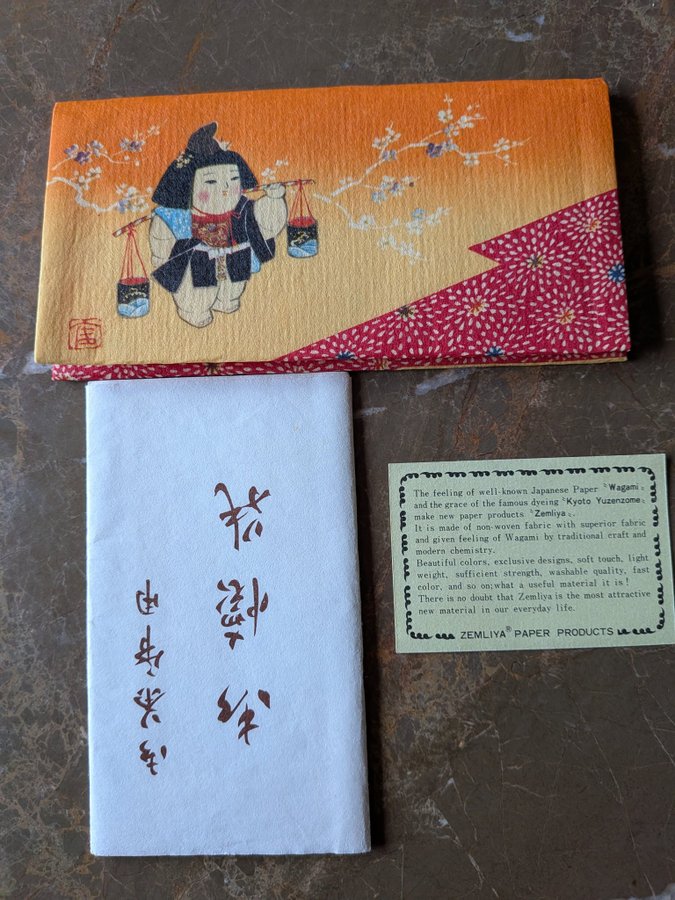 御茶席用
御懐紙
The feeling of well-known Japanese Paper〝Wagami〟
and the grace of the famous dyeing〝Kyoto Yuzenzome〟
make new paper products〝Zemliya〟.
It is made of non-woven fabric with superior fabric
and given feeling of Wagami by traditional craft and
modern chemistry.
Beautiful colors, exclusive designs, soft touch, light
weight, sufficient strength, washable quality, fast
color, and so on;what a useful material it is !
There is no doubt that Zemliya is the most attractive
new material in our everyday life.
ZEMLIYA® PAPER PRODUCTS